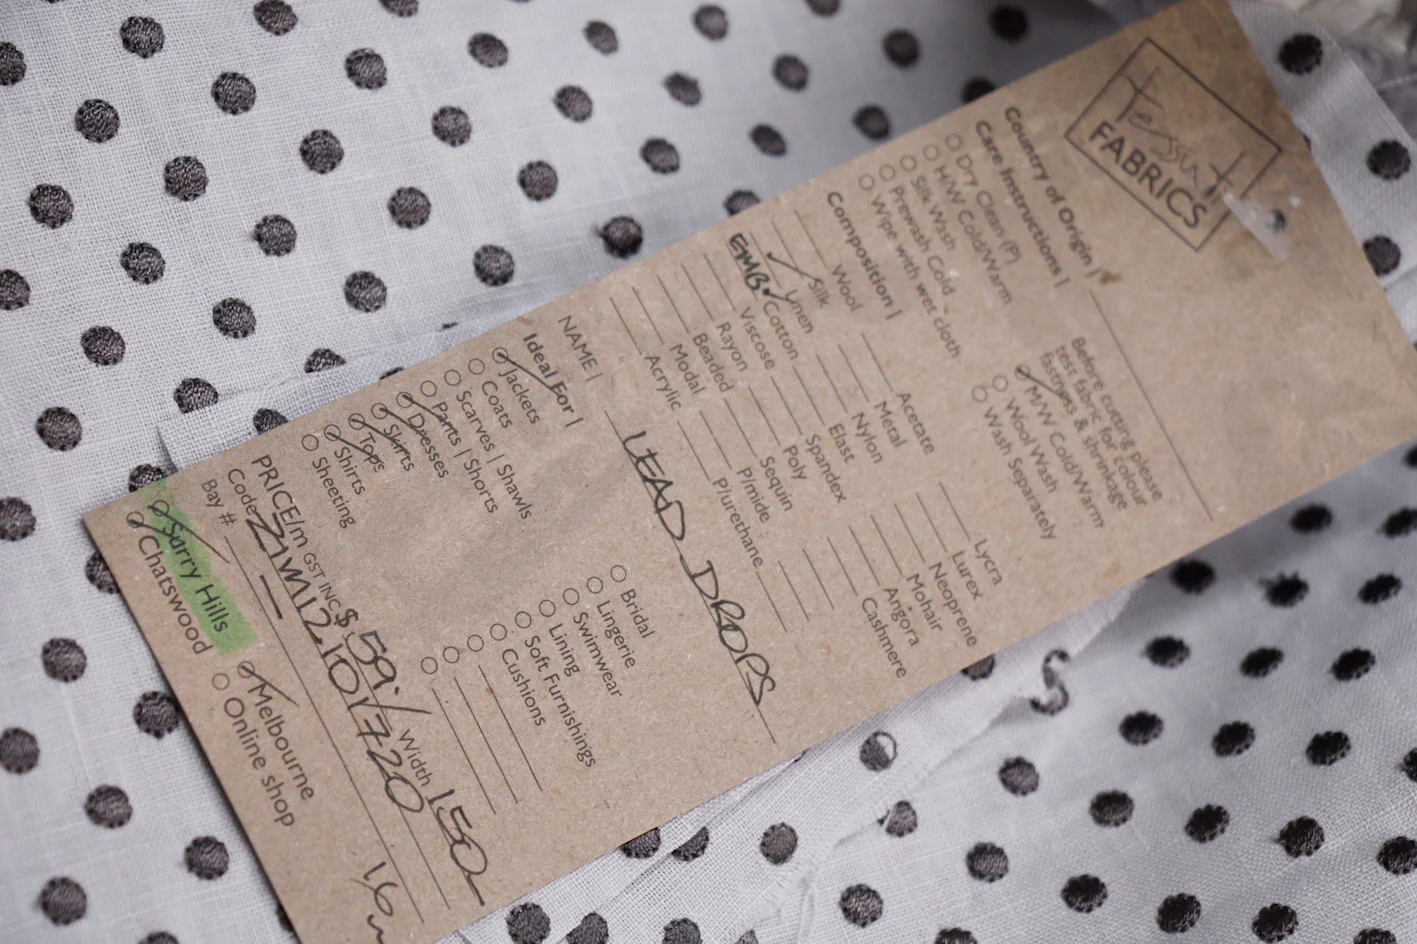 Tessuti
FABRICS
Country of Origin |
Care Instructions |
Dry Clean (P)
H/W Cold/Warm
Silk Wash
Prewash Cold
Wipe with wet cloth
Before cutting please
test fabric for colour
fastness & shrinkage
M/W Cold/Warm
Wool Wash
Wash Separately
Composition |
Wool
Silk
Linen
EMB. Cotton
Viscose
Rayon
Beaded
Modal
Acrylic
Acetate
Metal
Nylon
Elast
Spandex
Poly
Sequin
P/mide
P/urethane
Lycra
Lurex
Neoprene
Mohair
Angora
Cashmere
NAME | LEAD DROPS
Ideal For |
Jackets
Coats
Scarves | Shawls
Pants | Shorts
Dresses
Skirts
Tops
Shirts
Sheeting
Bridal
Lingerie
Swimwear
Lining
Soft Furnishings
Cushions
PRICE/m GST INC $ 59. Width 150
Code ZIW12.101720
Bay #
Surry Hills
Chatswood
Melbourne
Online shop